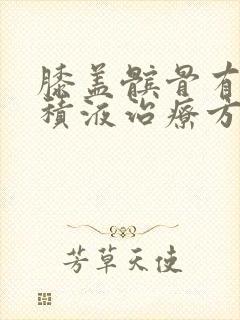 膝盖髌骨有
积液治疗方
芳草天使